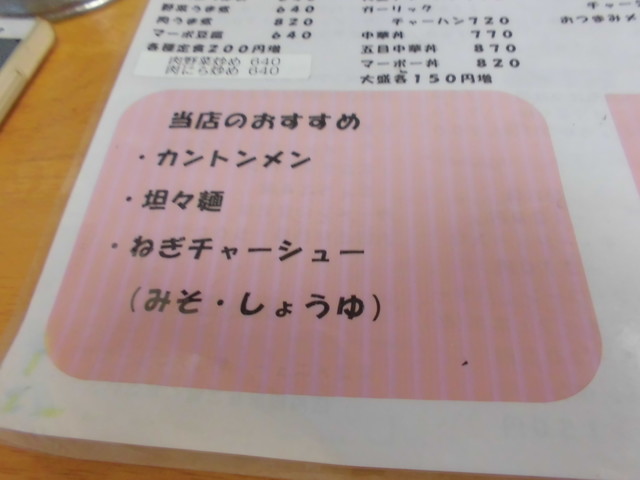 野菜うま煮 640
肉うま煮 820
マーボ豆腐 640
各種定食200円増
肉野菜炒め 640
肉にら炒め 640
ガーリック
チャーハン720
中華丼 770
五目中華丼 870
マーボー丼 820
大盛各150円増
チャー
おつまみメ
当店のおすすめ
・カントンメン
・坦々麺
・ねぎチャーシュー
(みそ・しょうゆ)